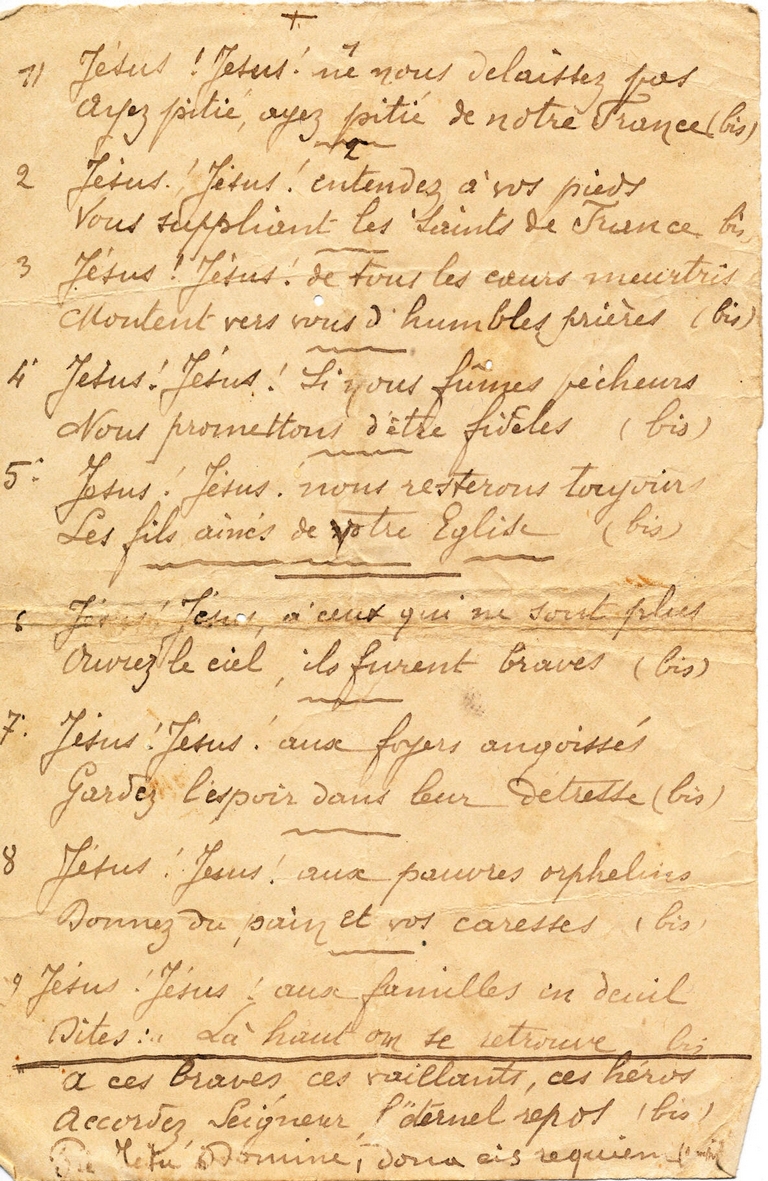 +
1) Jésus ! Jésus ! ne nous délaissez pas
Ayez pitié, ayez pitié de notre France (bis)
2 Jésus ! Jésus ! entendez à vos pieds
Vous suppliant les Saints de France bis
3 Jésus ! Jésus ! de tous les cœurs meurtris
Montent vers vous d'humbles prières (bis)
4 Jésus ! Jésus ! Si nous fûmes pécheurs
Nous promettons d'être fidèles (bis)
5. Jésus ! Jésus ! nous resterons toujours
Les fils ainés de votre Eglise (bis)
6 Jésus ! Jésus, à ceux qui ne sont plus
Ouvrez le ciel, ils furent braves (bis)
7. Jésus ! Jésus ! aux foyers angoissés
Gardez l'espoir dans leur détresse (bis)
8 Jésus ! Jésus ! aux pauvres orphelins
Donnez du pain et vos caresses (bis)
9 Jésus ! Jésus ! aux familles en deuil
Dites : Là haut on se retrouve bis
a ces braves, ces vaillants, ces héros
Accordez Seigneur l'éternel repos (bis)
Pie Jesu Domine, dona eis requiem